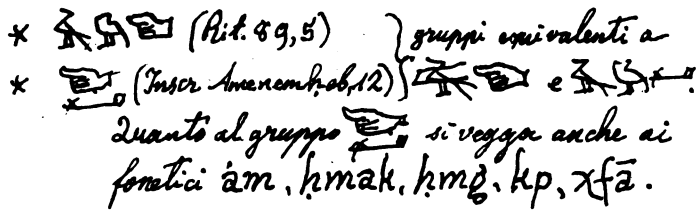 * (Rit. 89,5) } gruppi equivalenti a
* (Inscr Amenemḥeb, 12) } e .
Quanto al gruppo si vegga anche ai
fonetici ȧm, ḥmak, ḥmg, kp, χfā.